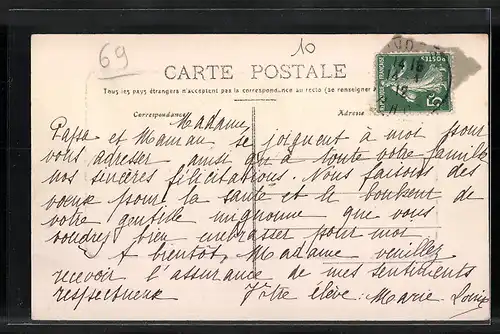 69
10
CARTE POSTALE
Tous les pays étrangers n'acceptent pas la correspondance au recto (se renseigner
Correspondance
Adresse
Madame,
Papa et Maman se joignent à moi pour
vous adresser ainsi qu'à toute votre famille
nos sincères félicitations. Nous faisons des
vœux pour la santé et le bonheur de
votre gentille mignonne que vous
voudrez bien embrasser pour moi.
A bientôt, Madame veuillez
recevoir l'assurance de mes sentiments
respectueux Votre élève: Marie Louise
5
POSTES